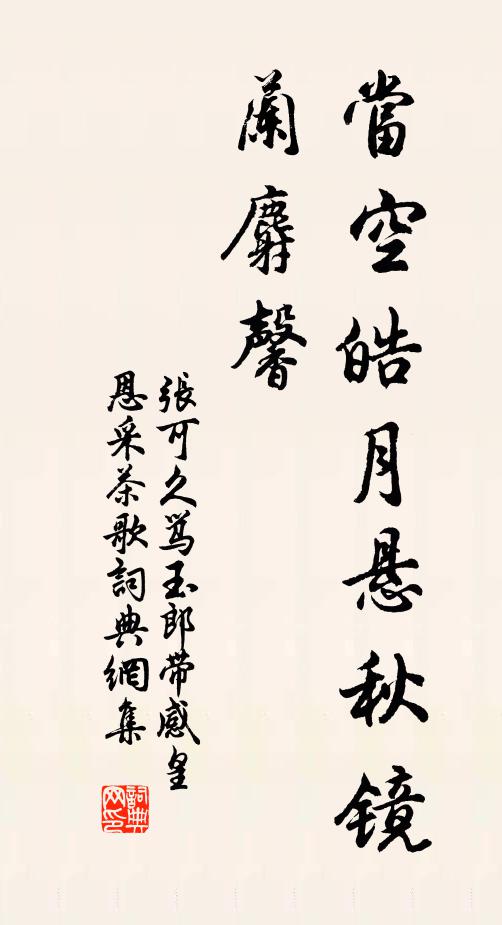 當空皓月悬秋镜
蘭麝馨
張可久骂玉郎带感皇
恩采茶歌詞典網集
詞典网印